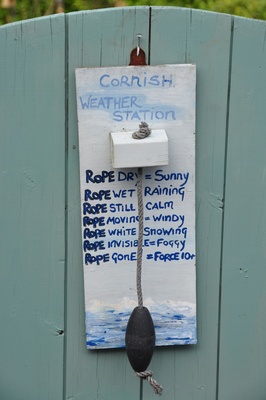 CORNISH
WEATHER
STATION
ROPE DRY = SUNNY
ROPE WET RAINING
ROPE STILL CALM
ROPE MOVING = WINDY
ROPE WHITE SNOWING
ROPE INVISIBLE = FOGGY
ROPE GONE = FORCE 10+